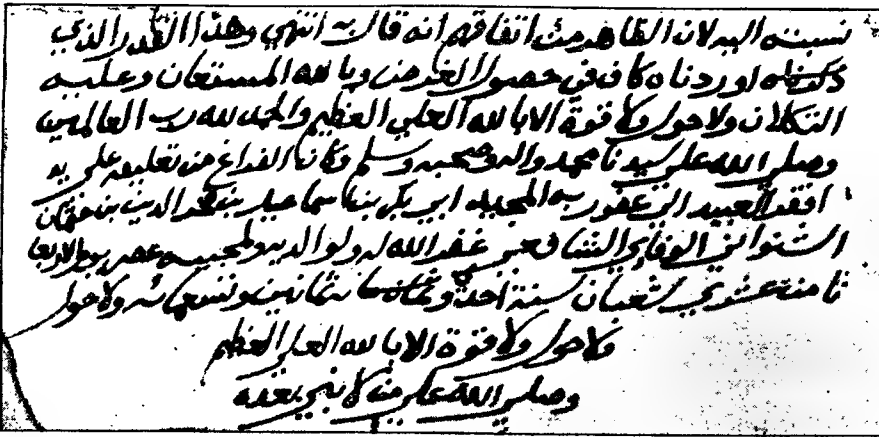 نسبته اليه لان الظاهر من اتفاقهم انه قال به انتهى وهذا القدر الذي
اوردناه كاف في حصول الغرض وبالله المستعان وعليه
التكلان ولا حول ولا قوة الا بالله العلي العظيم والحمد لله رب العالمين
وصلى الله على سيدنا محمد واله وصحبه وسلم وكان الفراغ من تعليقه على يد
افقر العبيد الى عفو ربه المجيد ابي بكر بن اسماعيل بن فخر الدين بن عثمان
الشنواني الوفايي الشافعي غفر الله له ولوالديه ولمحبيه عصر يوم الاربعا
ثامن عشري شعبان سنة احد وثمانين وتسعمائه ولا حول
ولا حول ولا قوة الا بالله العلي العظيم
وصلى الله على من لا نبي بعده